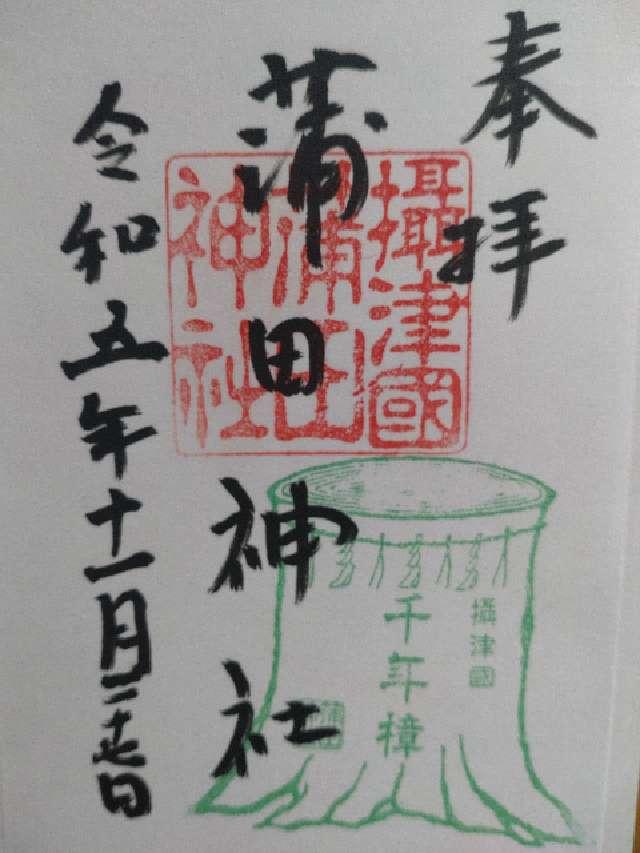 奉拝
攝津國
蒲田
神社
蒲田神社
攝津國
千年樟
令和五年十一月二十七日